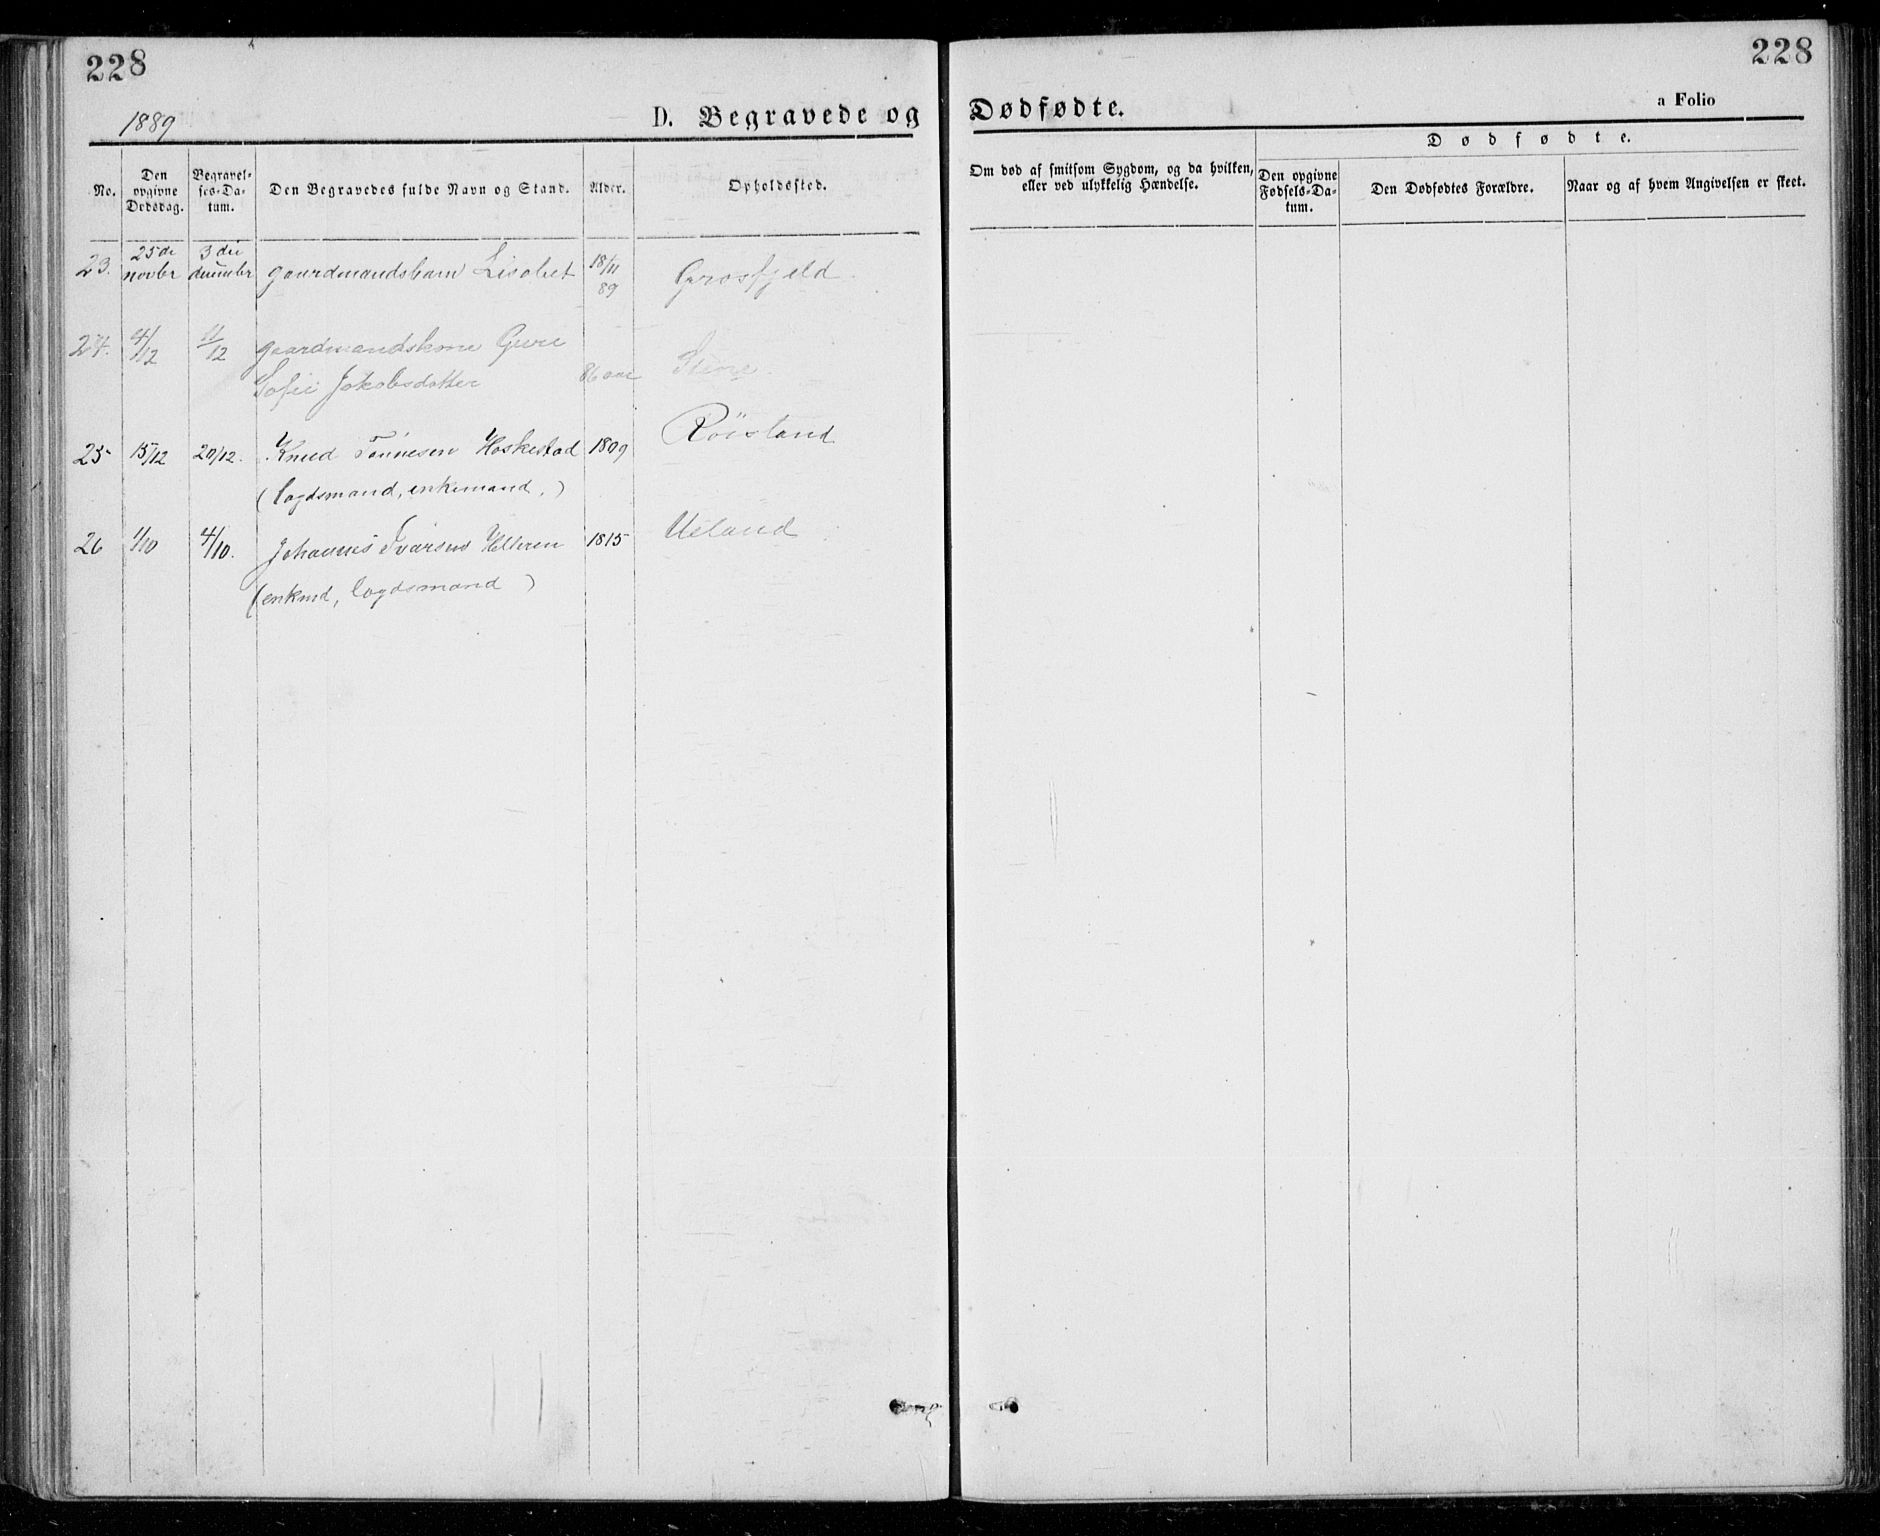 228
228
1889
D. Begravede og Dødfødte.
a Folio
Dødfødte.
No.
Den opgivne Dødsdag.
Begravelses-Datum.
Den Begravedes fulde Navn og Stand.
Alder.
Opholdssted.
Om død af smitsom Sygdom, og da hvilken, eller ved ulykkelig Hændelse.
Den opgivne Fødsels-Datum.
Den Dødfødtes Forældre.
Naar og af hvem Angivelsen er skeet.
23. 25de novbr 3die gaardmandsbarn Lisabet 18/11 89 Grosfjeld
24. 4/12 11/12 gaardmandskone Guri
Sofie Jakobsdatter 86 aar
25 15/12 20/12. Knud Tønnesen Høskestad 1809 Röisland
(logdsmand, enkemand,)
26 1/10 4/10. Johannes Ivarsen Helleren 1815 Ueland
(enkmd, logdsmand)